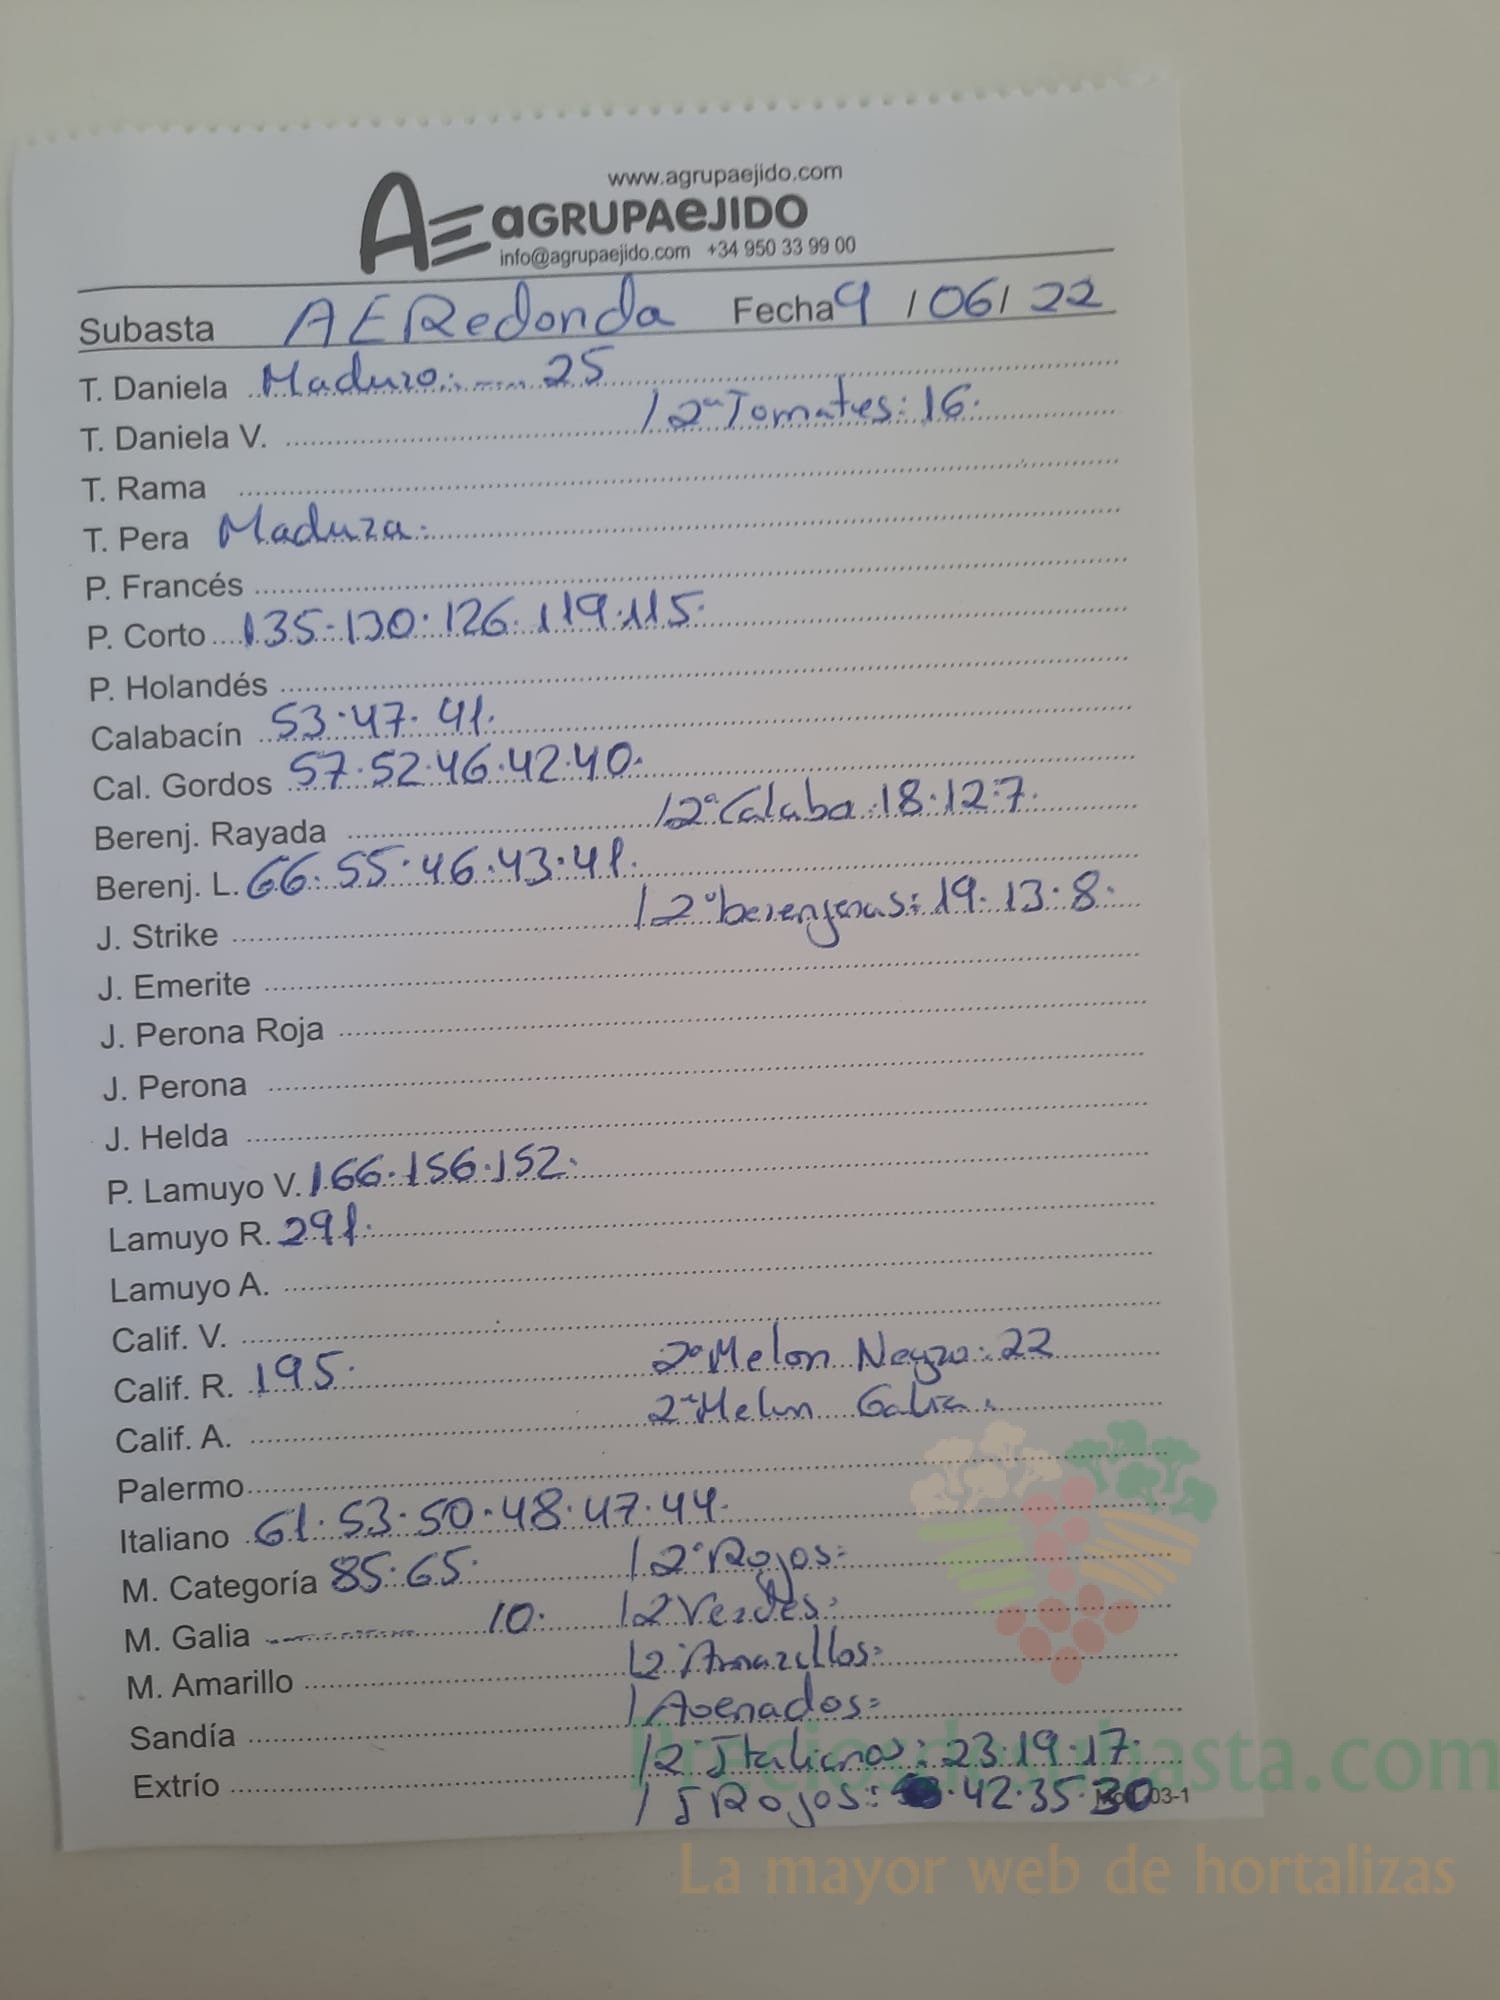 www.agrupaejido.com
AE aGRUPAeJIDO
info@agrupaejido.com +34 950 33 99 00
Subasta AERedonda Fecha 9 / 06 / 22
T. Daniela Maduro: 25
T. Daniela V. / 2ª Tomates: 16.
T. Rama
T. Pera Madura.
P. Francés
P. Corto 135.130.126.119.115.
P. Holandés
Calabacín 53.47.41.
Cal. Gordos 57.52.46.42.40.
Berenj. Rayada / 2ª Calaba: 18.12.7.
Berenj. L. 66.55.46.43.41.
J. Strike / 2ª berenjenas: 19.13.8.
J. Emerite
J. Perona Roja
J. Perona
J. Helda
P. Lamuyo V. 166.156.152.
Lamuyo R. 291.
Lamuyo A.
Calif. V.
Calif. R. 195. 2ª Melon Negro: 22
Calif. A. 2ª Melon Galia:
Palermo
Italiano 61.53.50.48.47.44.
M. Categoría 85.65. / 2ª Rojos:
M. Galia 10. / 2 Verdes:
M. Amarillo / 2ª Amarillos:
Sandía / Asenados:
Extrío / 2ª Italianos: 23.19.17.
/ J Rojos: 42.35.30
03-1
La mayor web de hortalizas